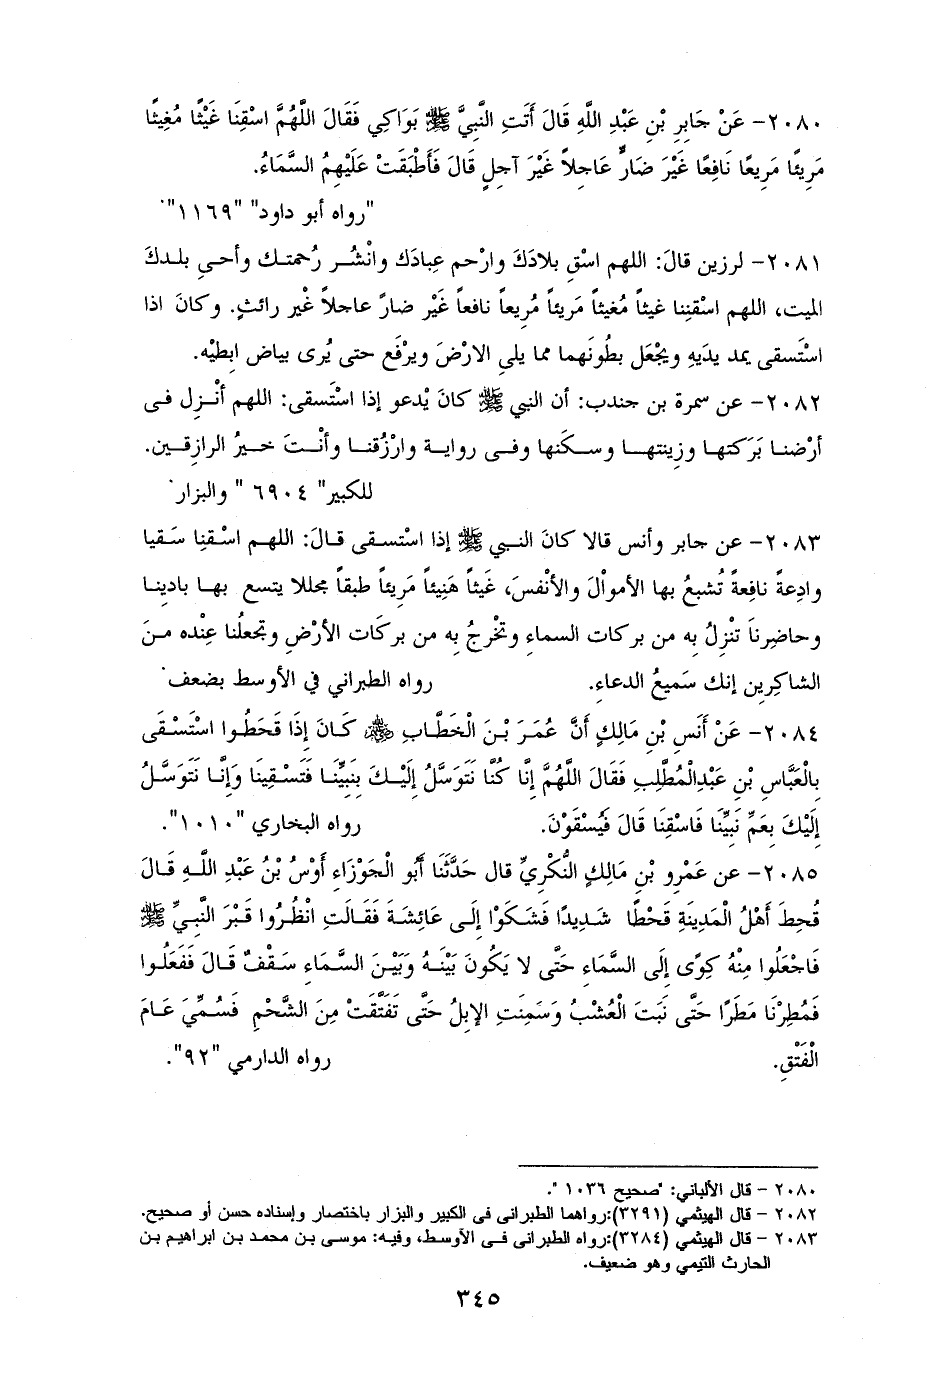 ٢٠٨٠- عَنْ جَابِرِ بْنِ عَبْدِ اللَّهِ قَالَ أَتَتِ النَّبِيَّ ﷺ بَوَاكِي فَقَالَ اللَّهُمَّ اسْقِنَا غَيْثًا مُغِيثًا
مَرِيئًا مَرِيعًا نَافِعًا غَيْرَ ضَارٍّ عَاجِلاً غَيْرَ آجِلٍ قَالَ فَأَطْبَقَتْ عَلَيْهِمُ السَّمَاءُ.
"رواه أبو داود" "١١٦٩".
٢٠٨١- لرزين قالَ: اللهم اسْقِ بلادَكَ وارْحم عِبادَك وانْشُر رُحمتك وأحيِ بلدكَ
الميت، اللهم اسْقنِنا غيثاً مُغيثاً مَريئاً مُريعاً نافعاً غَيْر ضارّ عاجلاً غْير رائثٍ. وكانَ اذا
اسْتَسقى يمد يدَيهِ ويجْعَل بطُونَهما مما يلي الارْضَ ويرْفَع حتى يُرى بياض ابطيْه.
٢٠٨٢- عن سمرة بن جندب: أن النبي ﷺ كانَ يْدعو إذا اسْتَسقى: اللهم أنْزِل فى
أرْضنا بَرَكتها وزِينتها وسكَنها وفى رواية وارْزُقنا وأنْتَ خيرُ الرازِقين.
للكبير" ٦٩٠٤ " والبزار.
٢٠٨٣- عن جابر وأنس قالا كانَ النبي ﷺ إذا اسْتسقى قالَ: اللهم اسْقنِا سَقيا
وادِعةً نافِعةً تُشبعُ بها الأموالَ والأنْفسَ، غَيثاً هَنِيئاً مَرِيئاً طبقاً مجللا يتسع بها بادِينا
وحاضِرناَ تنْزِلُ به من بركات السماء وتخْرجُ به من بركَات الأرْضِ وتجعلُنا عِنْده منَ
الشاكِرين إنك سَميعُ الدعاءِ. رواه الطبراني في الأوسط بضعف.
٢٠٨٤- عَنْ أَنَسِ بْنِ مَالِكٍ أَنَّ عُمَرَ بْنَ الْخَطَّابِ رضي الله عنه كَانَ إِذَا قَحَطُوا اسْتَسْقَى
بِالْعَبَّاسِ بْنِ عَبْدِالْمُطَّلِبِ فَقَالَ اللَّهُمَّ إِنَّا كُنَّا نَتَوَسَّلُ إِلَيْكَ بِنَبِيِّنَا فَتَسْقِينَا وَإِنَّا نَتَوَسَّلُ
إِلَيْكَ بِعَمِّ نَبِيِّنَا فَاسْقِنَا قَالَ فَيُسْقَوْنَ. رواه البخاري "١٠١٠".
٢٠٨٥- عن عَمْرِو بْنِ مَالِكٍ النُّكْرِيِّ قال حَدَّثَنَا أَبُو الْجَوْزَاءِ أَوْسُ بْنُ عَبْدِ اللَّهِ قَالَ
قُحِطَ أَهْلُ الْمَدِينَةِ قَحْطًا شَدِيدًا فَشَكَوْا إِلَى عَائِشَةَ فَقَالَتِ انْظُرُوا قَبْرَ النَّبِيِّ ﷺ
فَاجْعَلُوا مِنْهُ كِوًى إِلَى السَّمَاءِ حَتَّى لا يَكُونَ بَيْنَهُ وَبَيْنَ السَّمَاءِ سَقْفٌ قَالَ فَفَعَلُوا
فَمُطِرْنَا مَطَرًا حَتَّى نَبَتَ الْعُشْبُ وَسَمِنَتِ الإِبِلُ حَتَّى تَفَتَّقَتْ مِنَ الشَّحْمِ فَسُمِّيَ عَامَ
الْفَتْقِ. رواه الدارمي "٩٢".
٢٠٨٠ - قال الألباني: "صحيح ١٠٣٦".
٢٠٨٢ - قال الهيثمي (٣٢٩١):رواهما الطبرانى فى الكبير والبزار باختصار وإسناده حسن أو صحيح.
٢٠٨٣ - قال الهيثمي (٣٢٨٤):رواه الطبرانى فى الأوسط، وفيه: موسى بن محمد بن ابراهيم بن
الحارث التيمي وهو ضعيف.
٣٤٥